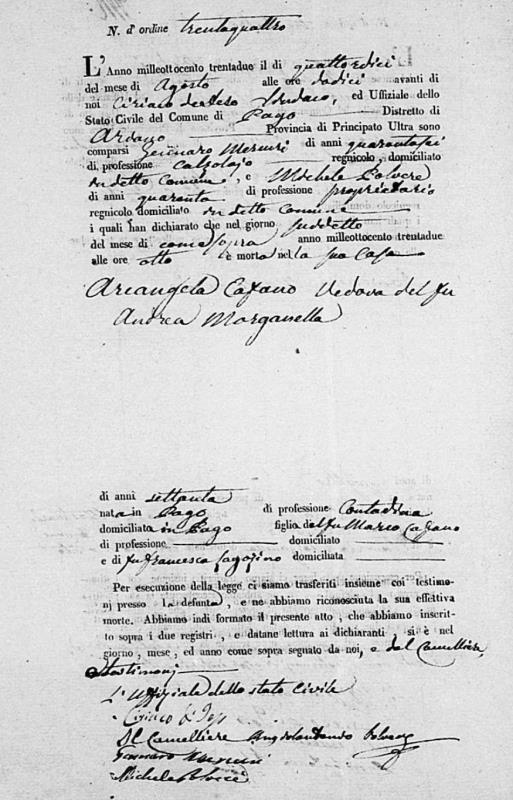 N. d'ordine trentaquattro
L'Anno milleottocento trentadue il dì quattordici
del mese di Agosto alle ore dodici avanti di
noi Ciriaco de Sindaco, ed Uffiziale dello
Stato Civile del Comune di Pago Distretto di
Ariano Provincia di Principato Ultra sono
comparsi Gennaro Mercuri di anni quarantasei
di professione calzolajo regnicolo, domiciliato
in detto Comune, e Michele Polvere
di anni quaranta di professione proprietario
regnicolo domiciliato in detto Comune
i quali han dichiarato che nel giorno suddetto
del mese di come sopra anno milleottocento trentadue
alle ore otto è morta nella sua Casa
Arcangela Cafano Vedova del fu
Andrea Morganella
di anni settanta
nata in Pago di professione Contadina
domiciliata in Pago figlia del fu Marco Cafano
di professione domiciliato
e di fu Francesca domiciliata
Per esecuzione della legge ci siamo trasferiti insieme coi testimo-
nj presso la defunta, e ne abbiamo riconosciuta la sua effettiva
morte. Abbiamo indi formato il presente atto, che abbiamo inscrit-
to sopra i due registri, e datane lettura ai dichiaranti si è nel
giorno, mese, ed anno come sopra segnato da noi, e dal Cancelliere,
e testimonj
L'Uffiziale dello stato Civile
Ciriaco
Il Cancelliere
Gennaro Mercuri
Michele